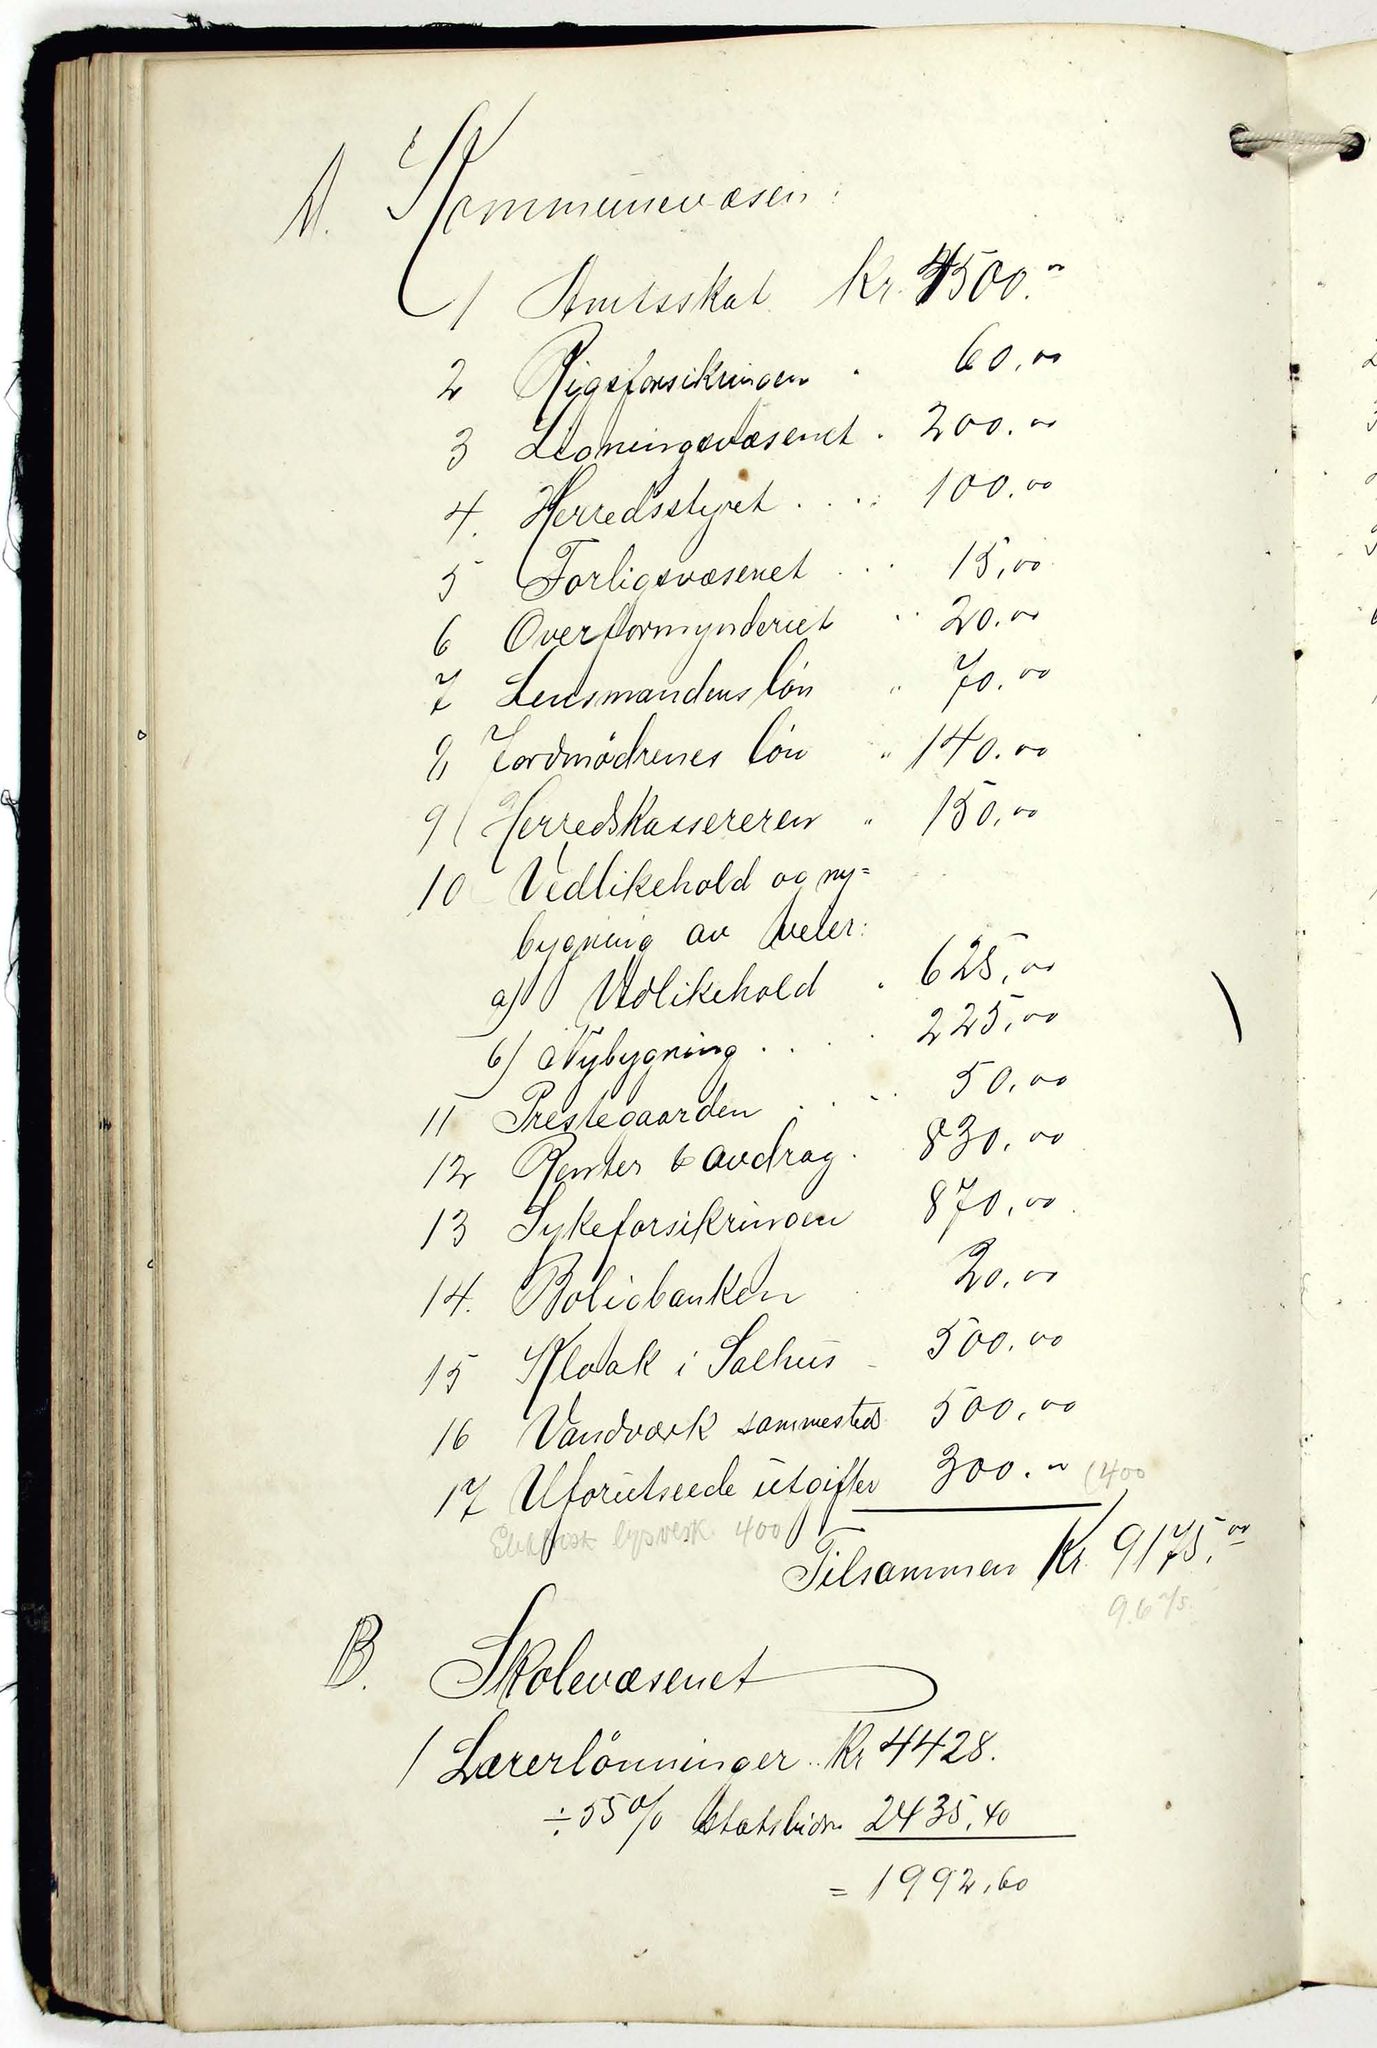 A. Kommunevæsen:
1 Amtsskat Kr. 4500.00
2 Rigsforsikringen 60,00
3 Ligningsvæsenet . 200.00
4. Herredsstyret . . . . 100.00
5 Forligsvæsenet . . . 15,00
6 Overformynderiet " 20.00
7 Lensmandens løn " 70.00
8 Jordmødrenes løn " 140.00
9 Herredskassereren " 150,00
10 Vedlikehold og ny=
bygning av veier:
a) Vedlikehold " 625,00
b) Nybygning . . . . 225,00
11 Prestegaarden . . . . 50,00
12 Renter & avdrag . 830,00
13 Sykeforsikringen 870,00
14. Boligbanken . 20,00
15 Kloak i Salhus - 500.00
16 Vandværk sammesteds 500,00
17 Uforutseede utgifter 300.00 (400
Elektrisk lysverk 400
Tilsammen Kr. 9175,00
9675.
B. Skolevæsenet
1 Lærerlönninger .. Kr 4428.
÷ 55% Statsbidr 2435,40
= 1992,60